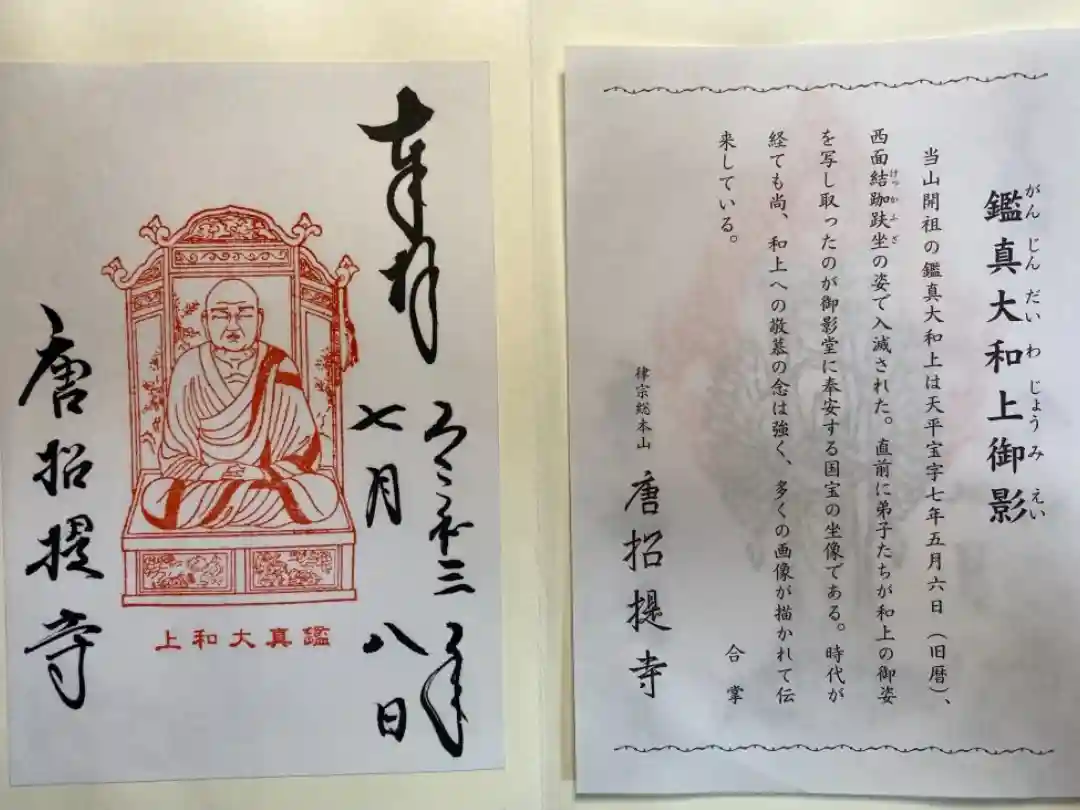 がんじんだいわじょうみえい
鑑真大和上御影
当山開祖の鑑真大和上は天平宝字七年五月六日（旧暦）、
けっかふざ
西面結跏趺坐の姿で入滅された。直前に弟子たちが和上の御姿
を写し取ったのが御影堂に奉安する国宝の坐像である。時代が
経ても尚、和上への敬慕の念は強く、多くの画像が描かれて伝
来している。
合掌
律宗総本山
唐招提寺
奉拝
令和三年
七月八日
鑑真大和上
唐招提寺